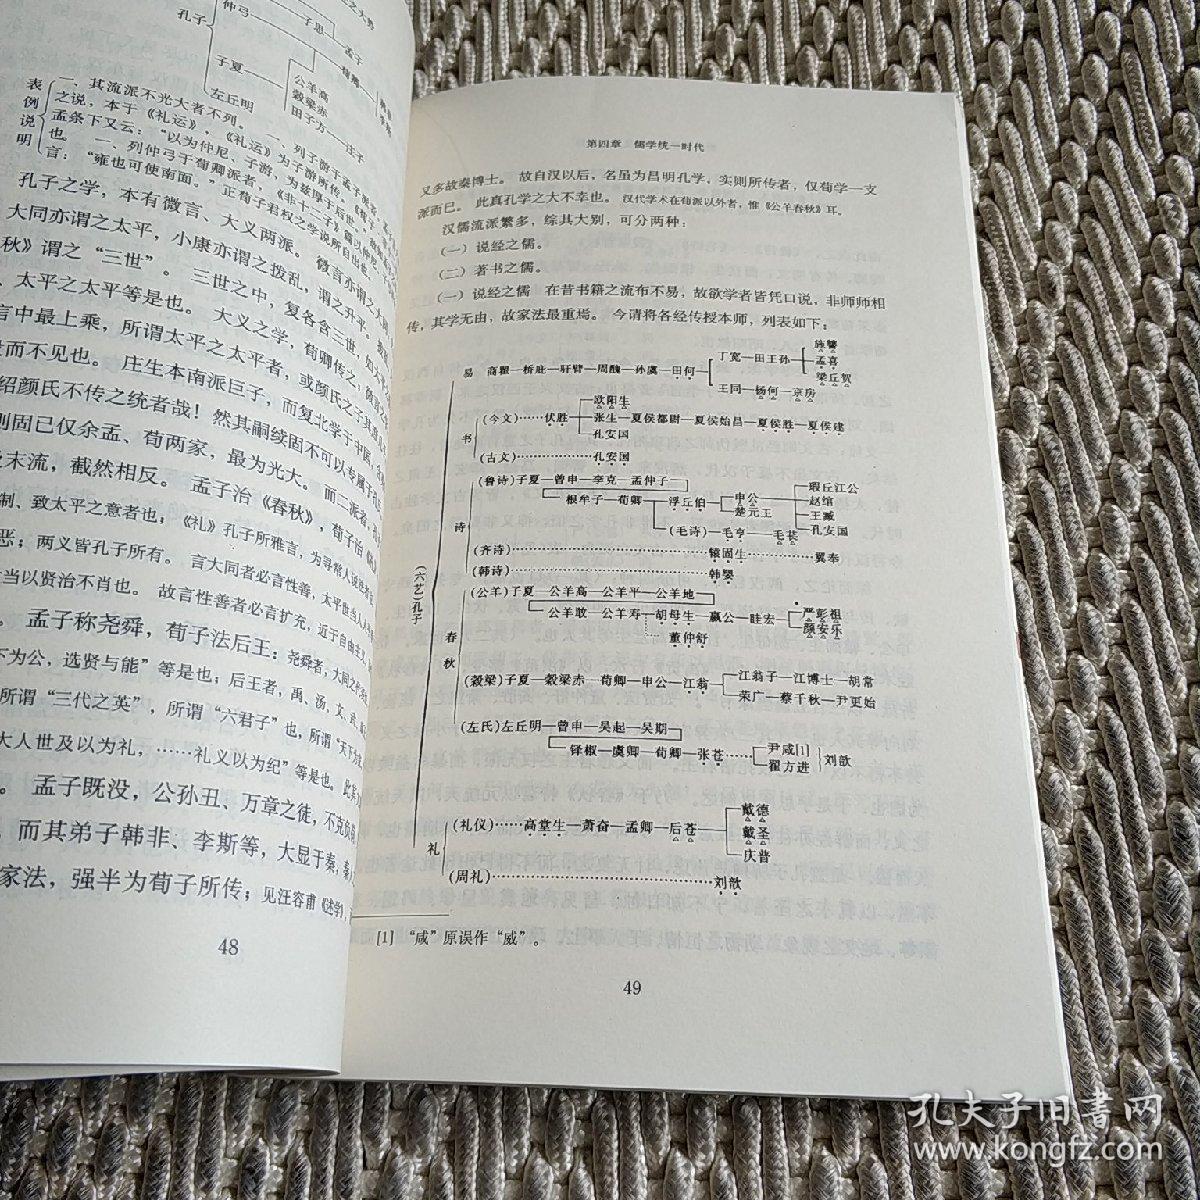 孔子
仲弓
子思
孟子
子夏
公羊高
穀梁赤
田子方
庄子
左丘明
表例说明
一、其流派不光大者不列。一、列子游于孟子
之说，本于《礼运》，《礼运》为子游所传。
孟条下又云：“以为仲尼、子游，为兹厚于后世
也。一、列仲弓于荀卿派者，《非十二子》篇
言：“雍也可使南面。”正荀子君权之学说所自出
孔子之学，本有微言、大义两派。微言亦谓之大同
大同亦谓之太平，小康亦谓之拨乱，谓之升平。
秋》谓之“三世”。三世之中，复各含三世，如
太平之太平等是也。大义之学，荀卿传之，微言
言中最上乘，所谓太平之太平者，或颜氏之子其
而不见也。庄生本南派巨子，而复北学于中国，
绍颜氏不传之统者哉！然其嗣续固不可以专属于
则固已仅余孟、荀两家，最为光大。而二派者，
末流，截然相反。孟子治《春秋》，荀子治
制、致太平之意者也；《礼》孔子所雅言，为寻常人说法者
恶；两义皆孔子所有。言大同者必言性善，太平世当人人
当以贤治不肖也。故言性善者必言扩充，近于自由主义
孟子称尧舜，荀子法后王：尧舜者，大同之代
下为公，选贤与能”等是也；后王者，禹、汤、文、武
所谓“三代之英”，所谓“六君子”也，所谓“天下为
大人世及以为礼，……礼义以为纪”等是也。此
孟子既没，公孙丑、万章之徒，不克负荷
而其弟子韩非、李斯等，大显于秦，秦
家法，强半为荀子所传；见汪容甫《述学》
48
第四章 儒学统一时代
又多故秦博士。故自汉以后，名虽为昌明孔学，实则所传者，仅荀学一支
派而已。此真孔学之大不幸也。汉代学术在荀派以外者，惟《公羊春秋》耳。
汉儒流派繁多，综其大别，可分两种：
（一）说经之儒。
（二）著书之儒。
（一）说经之儒 在昔书籍之流布不易，故欲学者皆凭口说，非师师相
传，其学无由，故家法最重焉。今请将各经传授本师，列表如下：
(六艺)孔子
易 商瞿—桥庇—馯臂—周醜—孙虞—田何
丁宽—田王孙
施讐
孟喜
梁丘贺
王同—杨何—京房
书
(今文)……伏胜
欧阳生
张生—夏侯都尉—夏侯始昌—夏侯胜—夏侯建
孔安国
(古文)……………孔安国
诗
(鲁诗)子夏—曾申—李克—孟仲子
根牟子—荀卿
浮丘伯
申公
楚元王
瑕丘江公
赵绾
王臧
孔安国
(毛诗)—毛亨—毛苌
(齐诗)……………辕固生……………翼奉
(韩诗)……………韩婴
春秋
(公羊)子夏—公羊高—公羊平—公羊地
公羊敢—公羊寿—胡母生—嬴公—眭宏
严彭祖
颜安乐
董仲舒
(穀梁)子夏—穀梁赤—荀卿—申公—江翁
江翁子—江博士—胡常
荣广—蔡千秋—尹更始
(左氏)左丘明—曾申—吴起—吴期
铎椒—虞卿—荀卿—张苍
尹咸[1]
翟方进
刘歆
礼
(礼仪)……高堂生—萧奋—孟卿—后苍
戴德
戴圣
庆普
(周礼)……………刘歆
[1] “咸”原误作“威”。
49
孔夫子旧书网
www.kongfz.com